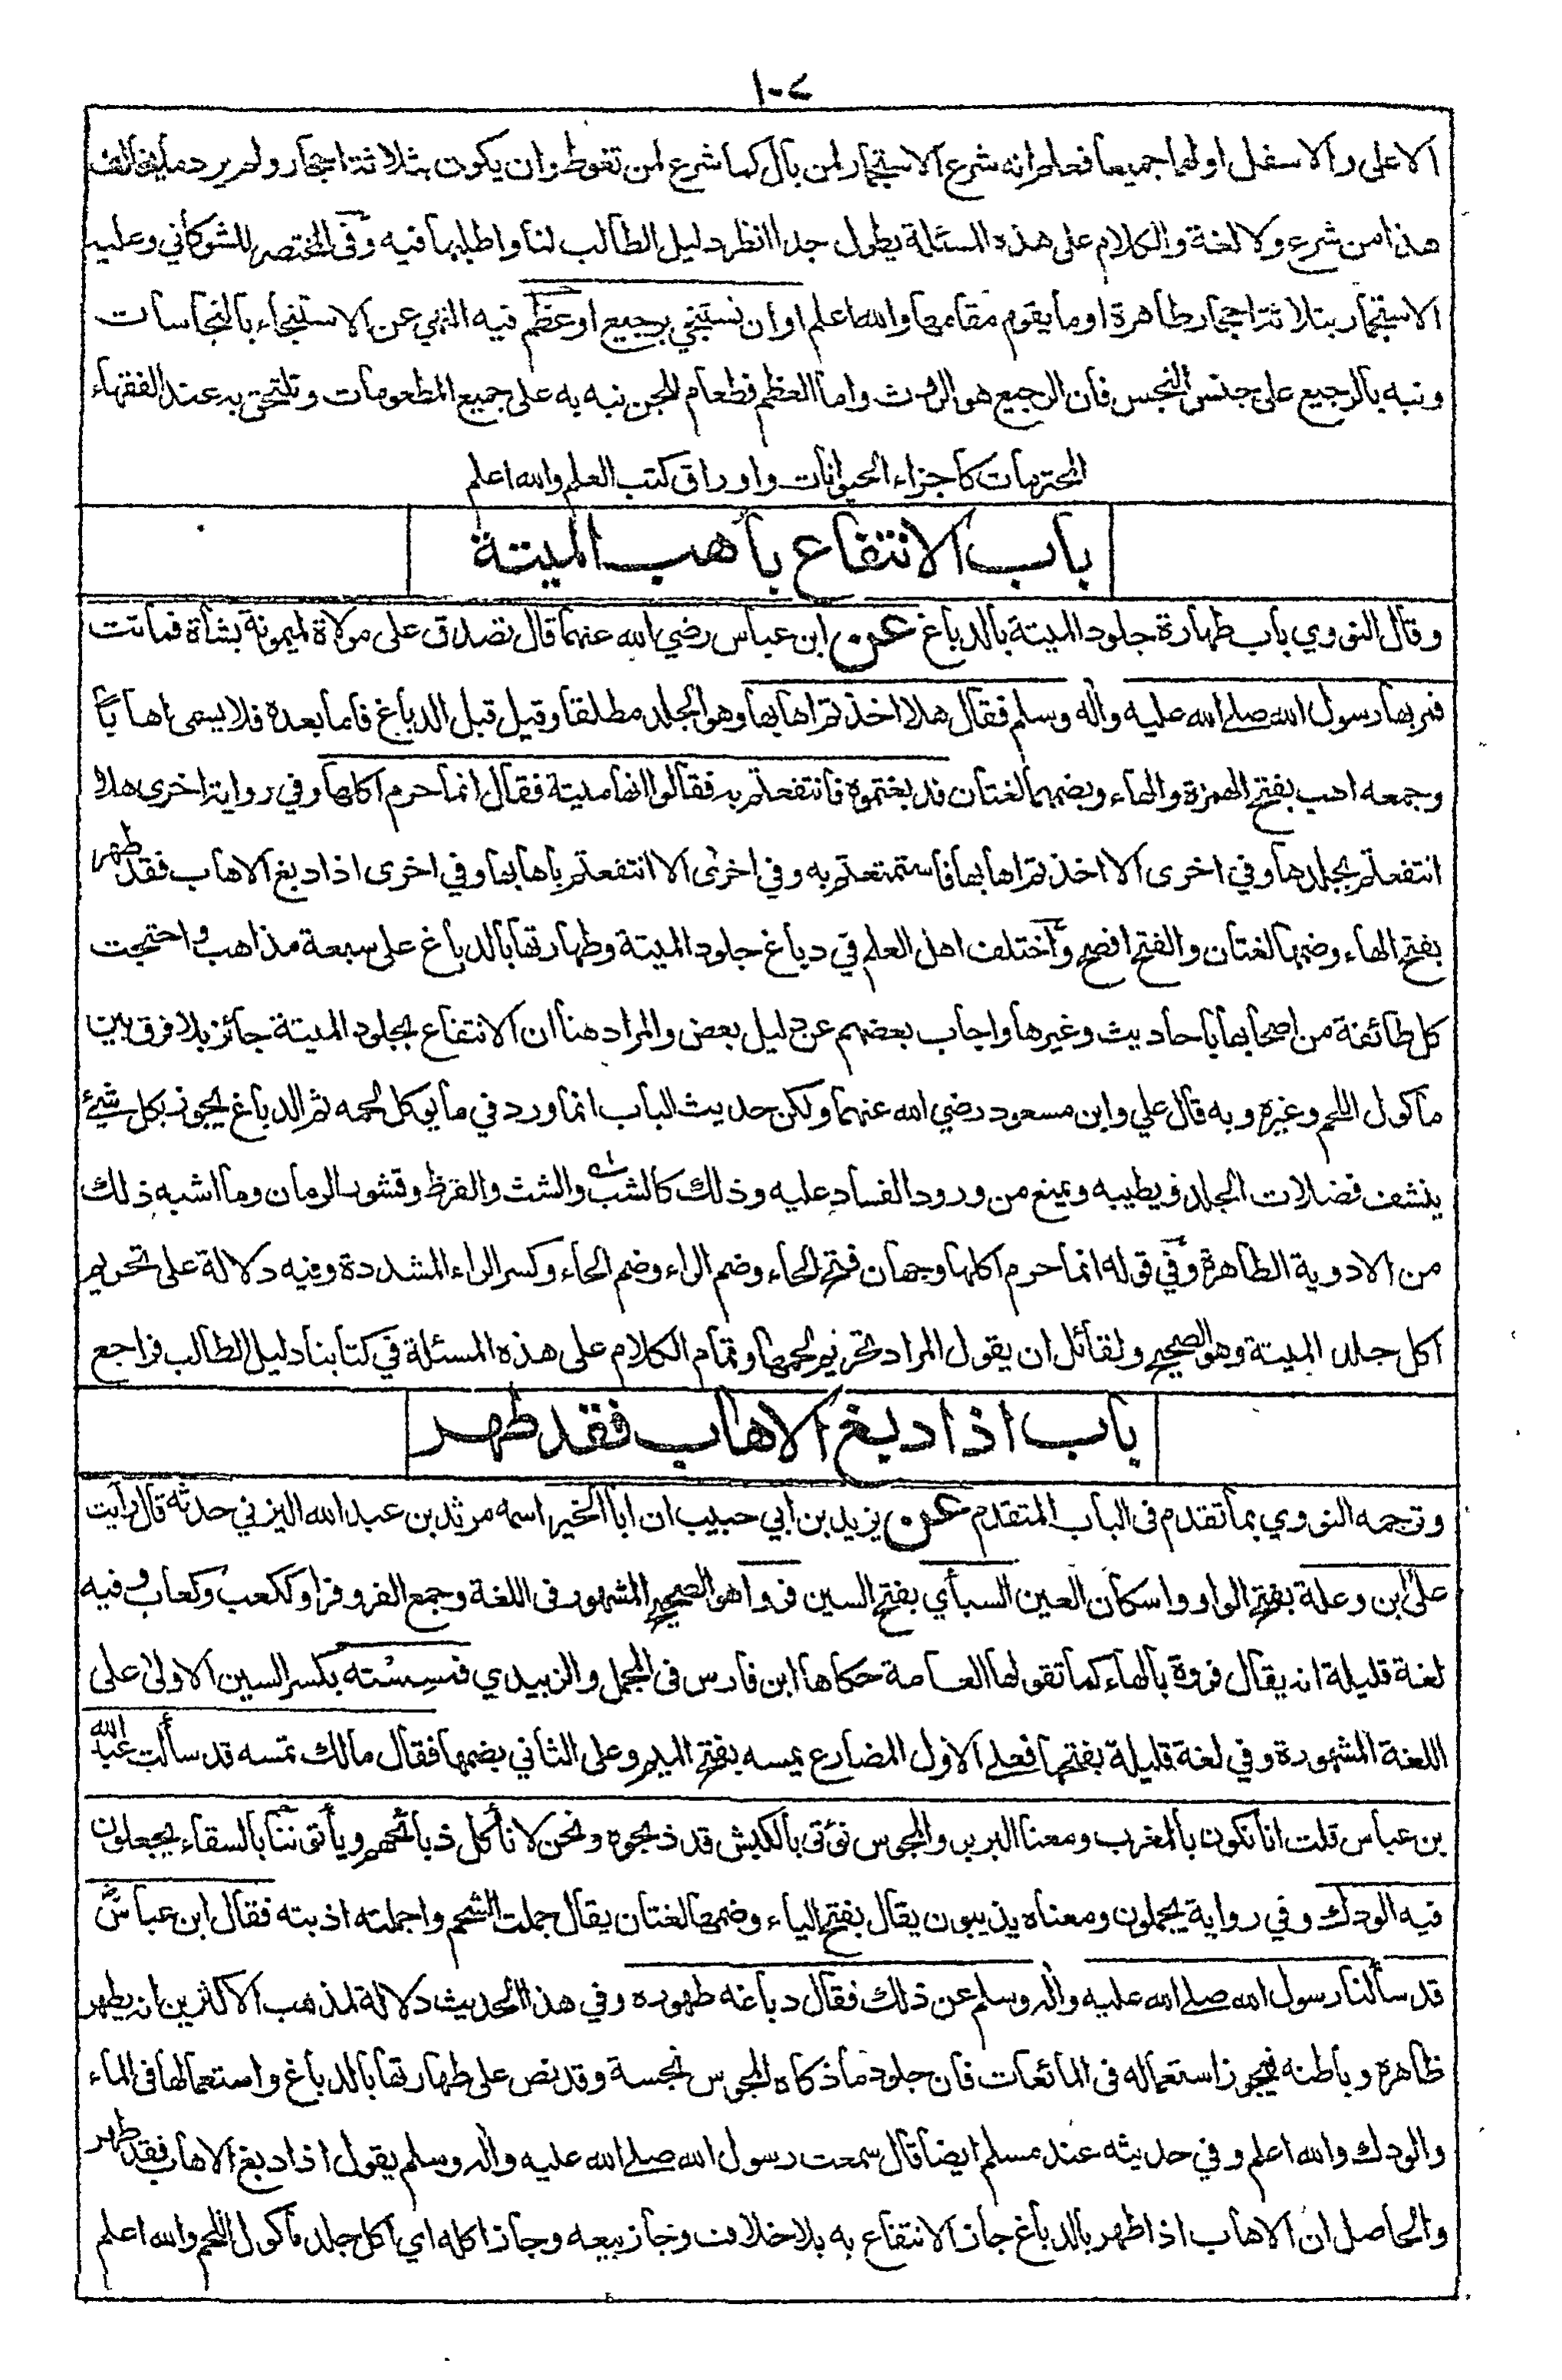 ١٠٧
الاعلى والاسفل اولهما جميعا فعلم انه شرع الاستجمار لمن بال كما شرع لمن تغوط وان يكون بثلاثة احجار ولم يرد ما يخالف
هذا من شرع ولا لغة والكلام على هذه المسئلة يطول جدا انظر دليل الطالب لنا واطلبها فيه وفي المختصر للشوكاني وعليه
الاستجمار بثلاثة احجار طاهرة او ما يقوم مقامها والله اعلم او ان نستنجي برجيع او عظم فيه النهي عن الاستنجاء بالنجاسات
ونبه بالرجيع على جنس النجس فان الرجيع هو الروث واما العظم فطعام للجن نبه به على جميع المطعومات وتلتحق به عند الفقهاء
المحترمات كاجزاء الحيوانات واوراق كتب العلم والله اعلم
باب الانتفاع بأهب الميتة
وقال النووي باب طهارة جلود الميتة بالدباغ عن ابن عباس رضي الله عنهما قال تصدق على مولاة لميمونة بشاة فماتت
فمر بها رسول الله صلى الله عليه واله وسلم فقال هلا اخذتم اهابها وهو الجلد مطلقا وقيل قبل الدباغ فاما بعده فلا يسمى اهابا
وجمعه اهب بفتح الهمزة والهاء وبضمهما لغتان فدبغتموه فانتفعتم به فقالوا انها ميتة فقال انما حرم اكلها وفي رواية اخرى هلا
انتفعتم بجلدها وفي اخرى الا اخذتم اهابها فاستمتعتم به وفي اخرى الا انتفعتم باهابها وفي اخرى اذا دبغ الاهاب فقد طهر
بفتح الهاء وضمها لغتان والفتح افصح واختلف اهل العلم في دباغ جلود الميتة وطهارتها بالدباغ على سبعة مذاهب واحتجت
كل طائفة من اصحابها باحاديث وغيرها واجاب بعضهم عن دليل بعض والمراد هنا ان الانتفاع بجلود الميتة جائز بلا فرق بين
ماكول اللحم وغيره وبه قال علي وابن مسعود رضي الله عنهما ولكن حديث الباب انما ورد في ما يوكل لحمه ثم الدباغ يجوز بكل شيئ
ينشف فضلات الجلد ويطيبه ويمنع من ورود الفساد عليه وذلك كالشب والشث والقرظ وقشور الرمان وما اشبه ذلك
من الادوية الطاهرة وفي قوله انما حرم اكلها وجهان فتح الحاء وضم الراء وضم الحاء وكسر الراء المشددة وفيه دلالة على تحريم
اكل جلد الميتة وهو الصحيح ولقائل ان يقول المراد تحريم لحمها وتمام الكلام على هذه المسئلة في كتابنا دليل الطالب فراجع
باب اذا دبغ الاهاب فقد طهر
وترجمه النووي بما تقدم فى الباب المتقدم عن يزيد بن ابي حبيب ان ابا الخير اسمه مرثد بن عبد الله اليزني حدثه قال رأيت
على ابن وعلة بفتح الواو واسكان العين السبأي بفتح السين فروا هو الصحيح المشهور فى اللغة وجمع الفرو فراو ككعب وكعاب وفيه
لغة قليلة انه يقال فروة بالهاء كما تقولها العامة حكاها ابن فارس فى المجمل والزبيدي فمسِسْته بكسر السين الاولى على
اللغة المشهورة وفي لغة قليلة بفتحها فعلى الاول المضارع يمسه بفتح الميم وعلى الثاني بضمها فقال مالك تمسه قد سألت عبد الله
بن عباس قلت انا نكون بالمغرب ومعنا البربر والمجوس نؤتى بالكبش قد ذبحوه ونحن لا نأكل ذبائحهم ويأتوننا بالسقاء يجعلون
فيه الودك وفي رواية يجملون ومعناه يذيبون يقال بفتح الياء وضمها لغتان يقال جملت الشحم واجملته اذبته فقال ابن عباس
قد سألنا رسول الله صلى الله عليه واله وسلم عن ذلك فقال دباغه طهوره وفي هذا الحديث دلالة لمذهب الاكثرين انه يطهر
ظاهره وباطنه فيجوز استعماله فى المائعات فان جلود ما ذكاه المجوس نجسة وقد نص على طهارتها بالدباغ واستعمالها فى الماء
والودك والله اعلم وفي حديثه عند مسلم ايضا قال سمعت رسول الله صلى الله عليه واله وسلم يقول اذا دبغ الاهاب فقد طهر
والحاصل ان الاهاب اذا طهر بالدباغ جاز الانتفاع به بلا خلاف وجاز بيعه وجاز اكله اي اكل جلد ماكول اللحم والله اعلم